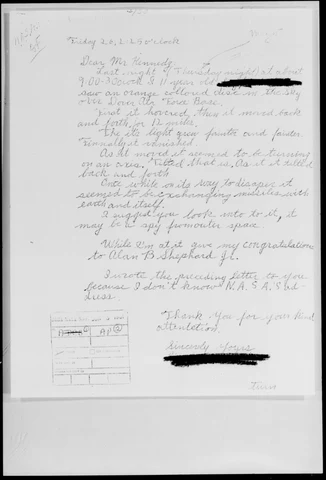 Friday 26, 2:25 o'clock
Dear Mr. Kennedy,
Last night (Thursday night) at about
9:00 o'clock I, 11 year old
saw an orange collored disk in the sky
over Dover Air Force Base.
First it hovered, then it moved back
and forth for 12 min.
The its light grew fainter and fainter.
Finnally it vanished.
As it moved it seemed to be turning
on an axis. Tilted that is. As it it tilted
back and forth
Once while on its way to disapper it
seemed to be exchangeing missiles with
earth and itself.
I suggest you look into to it, it
may be a spy from outer space.
While I'm at it give my congratulations
to Alan B. Shephard Jr.
I wrote the preceding letter to you
because I don't know N.A.S.A.'s ad-
dress.
Thank You for your kind
attendtion.
Sincerly Yours